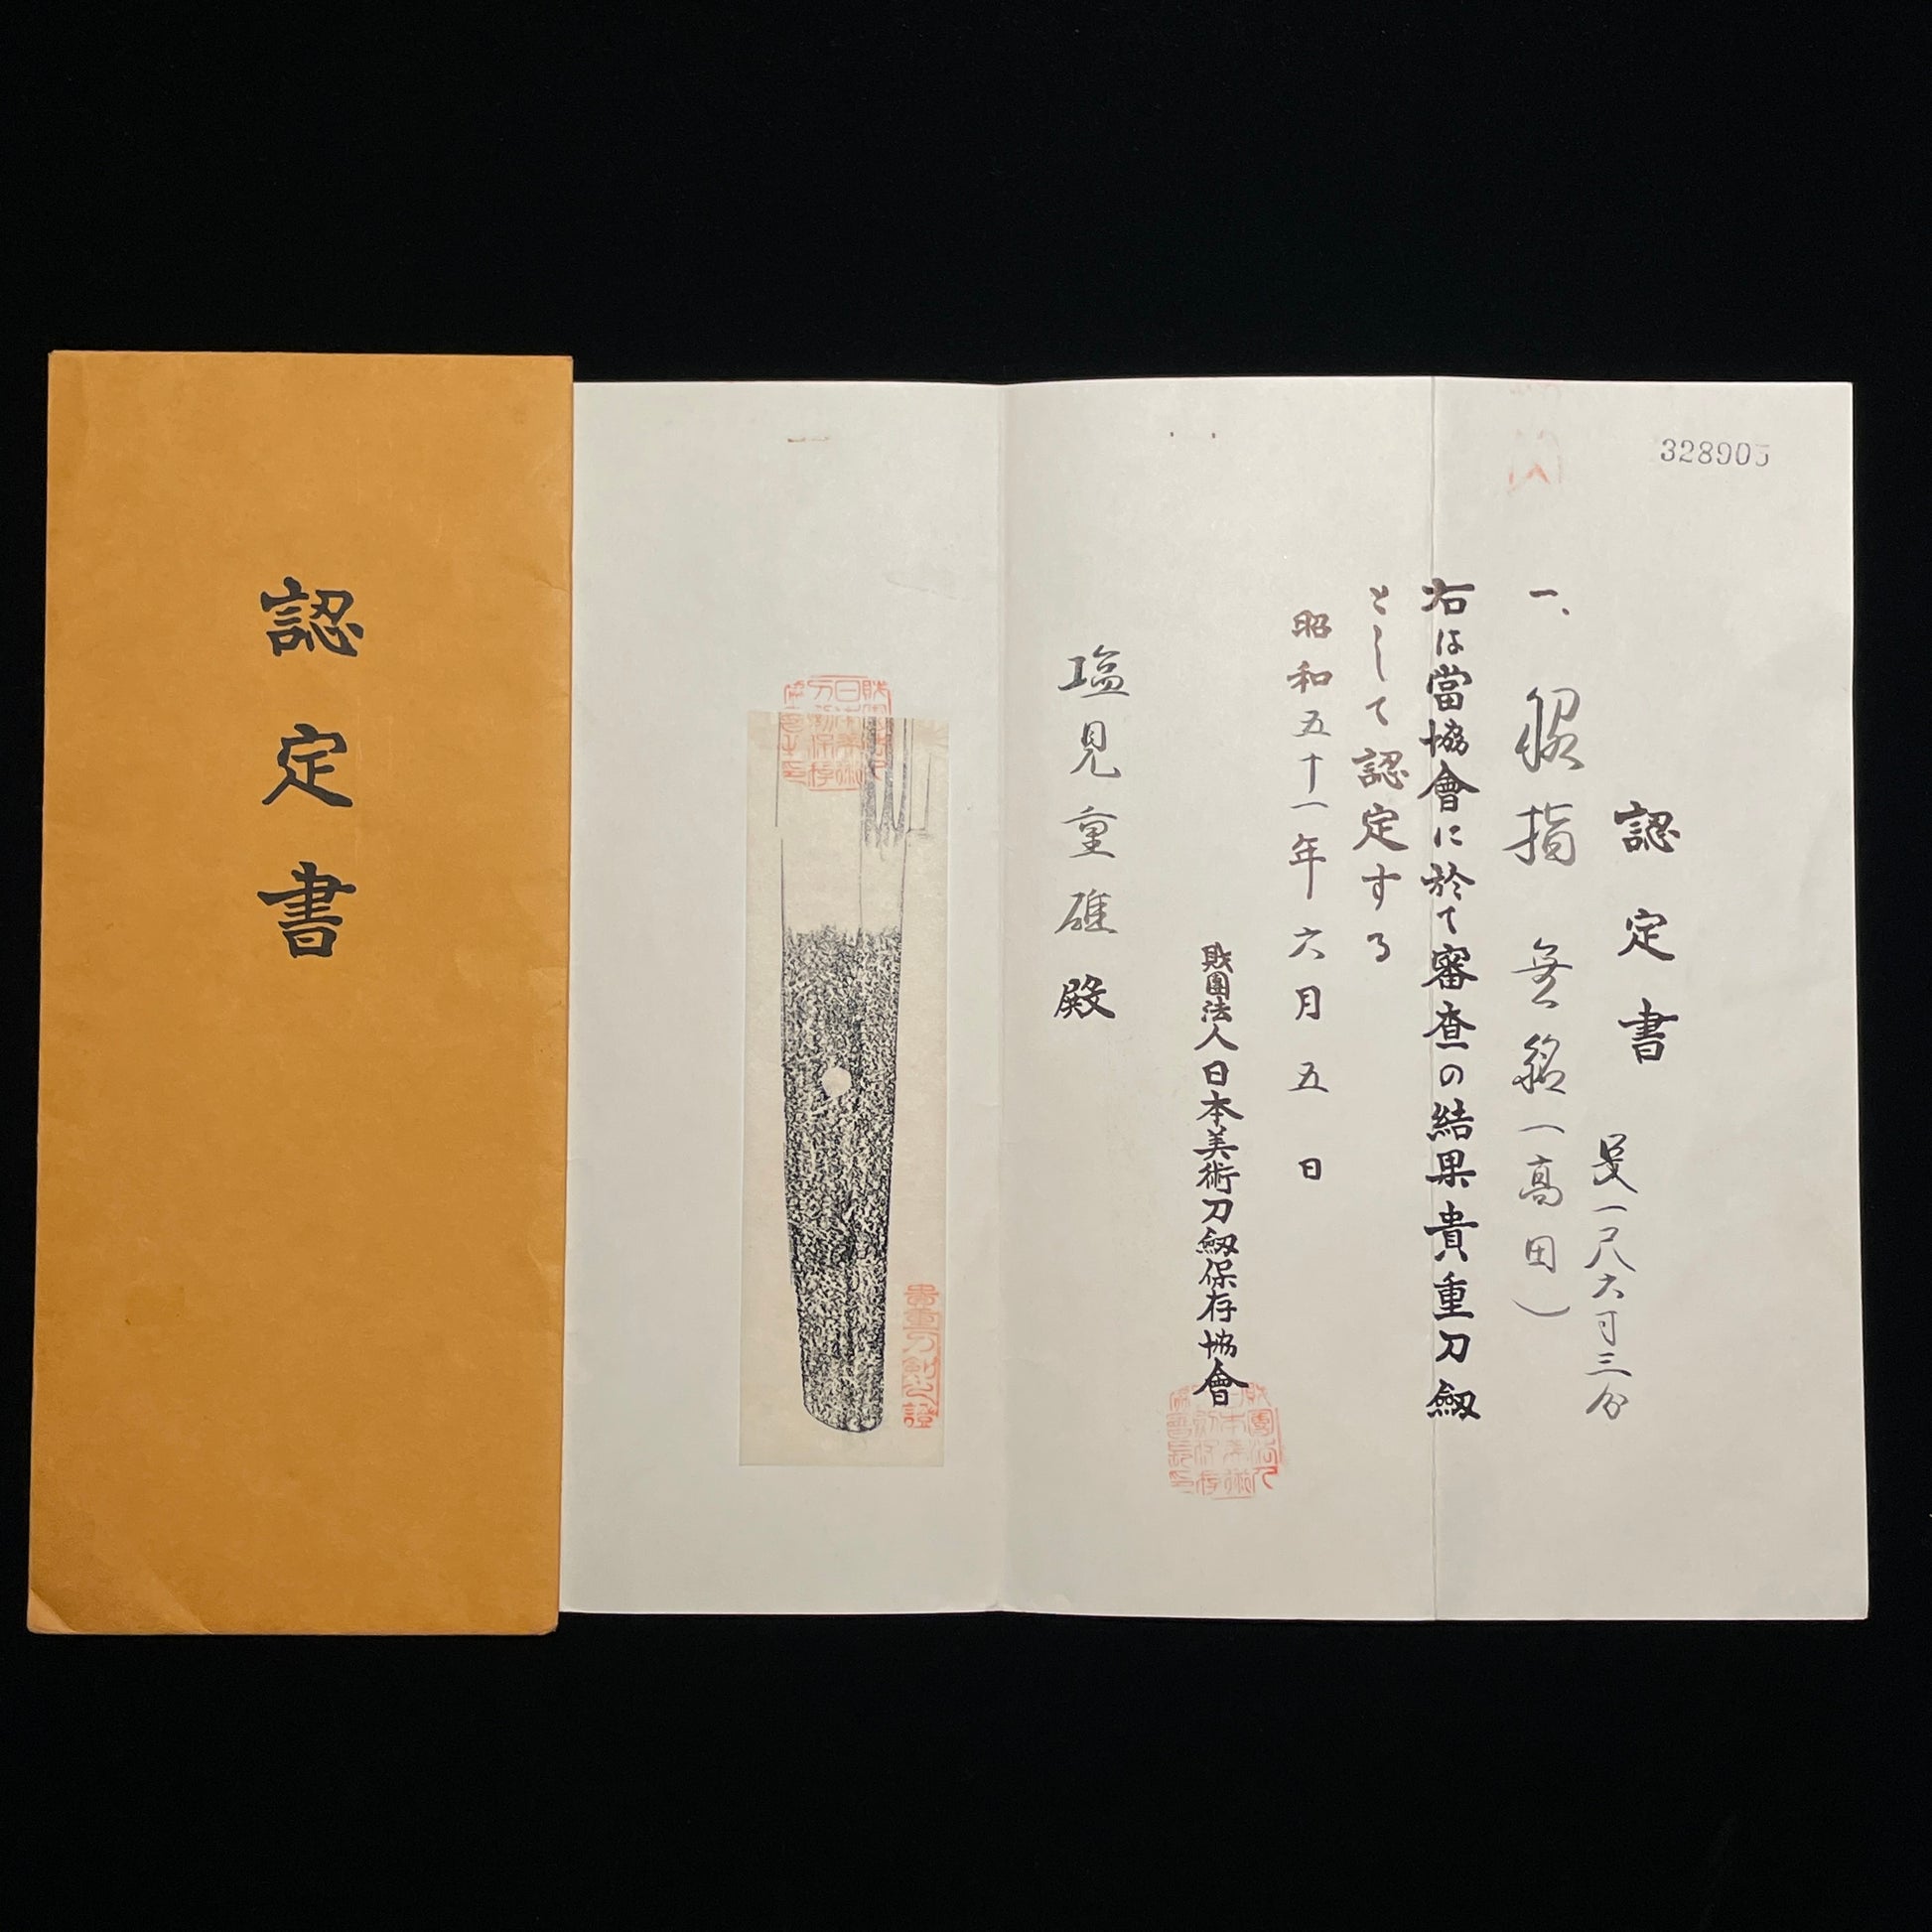 認定書
328905
認定書
一、脇指 無銘(高田)
長一尺六寸三分
右は當協會に於て審査の結果貴重刀劔
として認定する
昭和五十一年六月五日
財團法人日本美術刀劔保存協會
塩見重雄殿
貴重刀剣之證